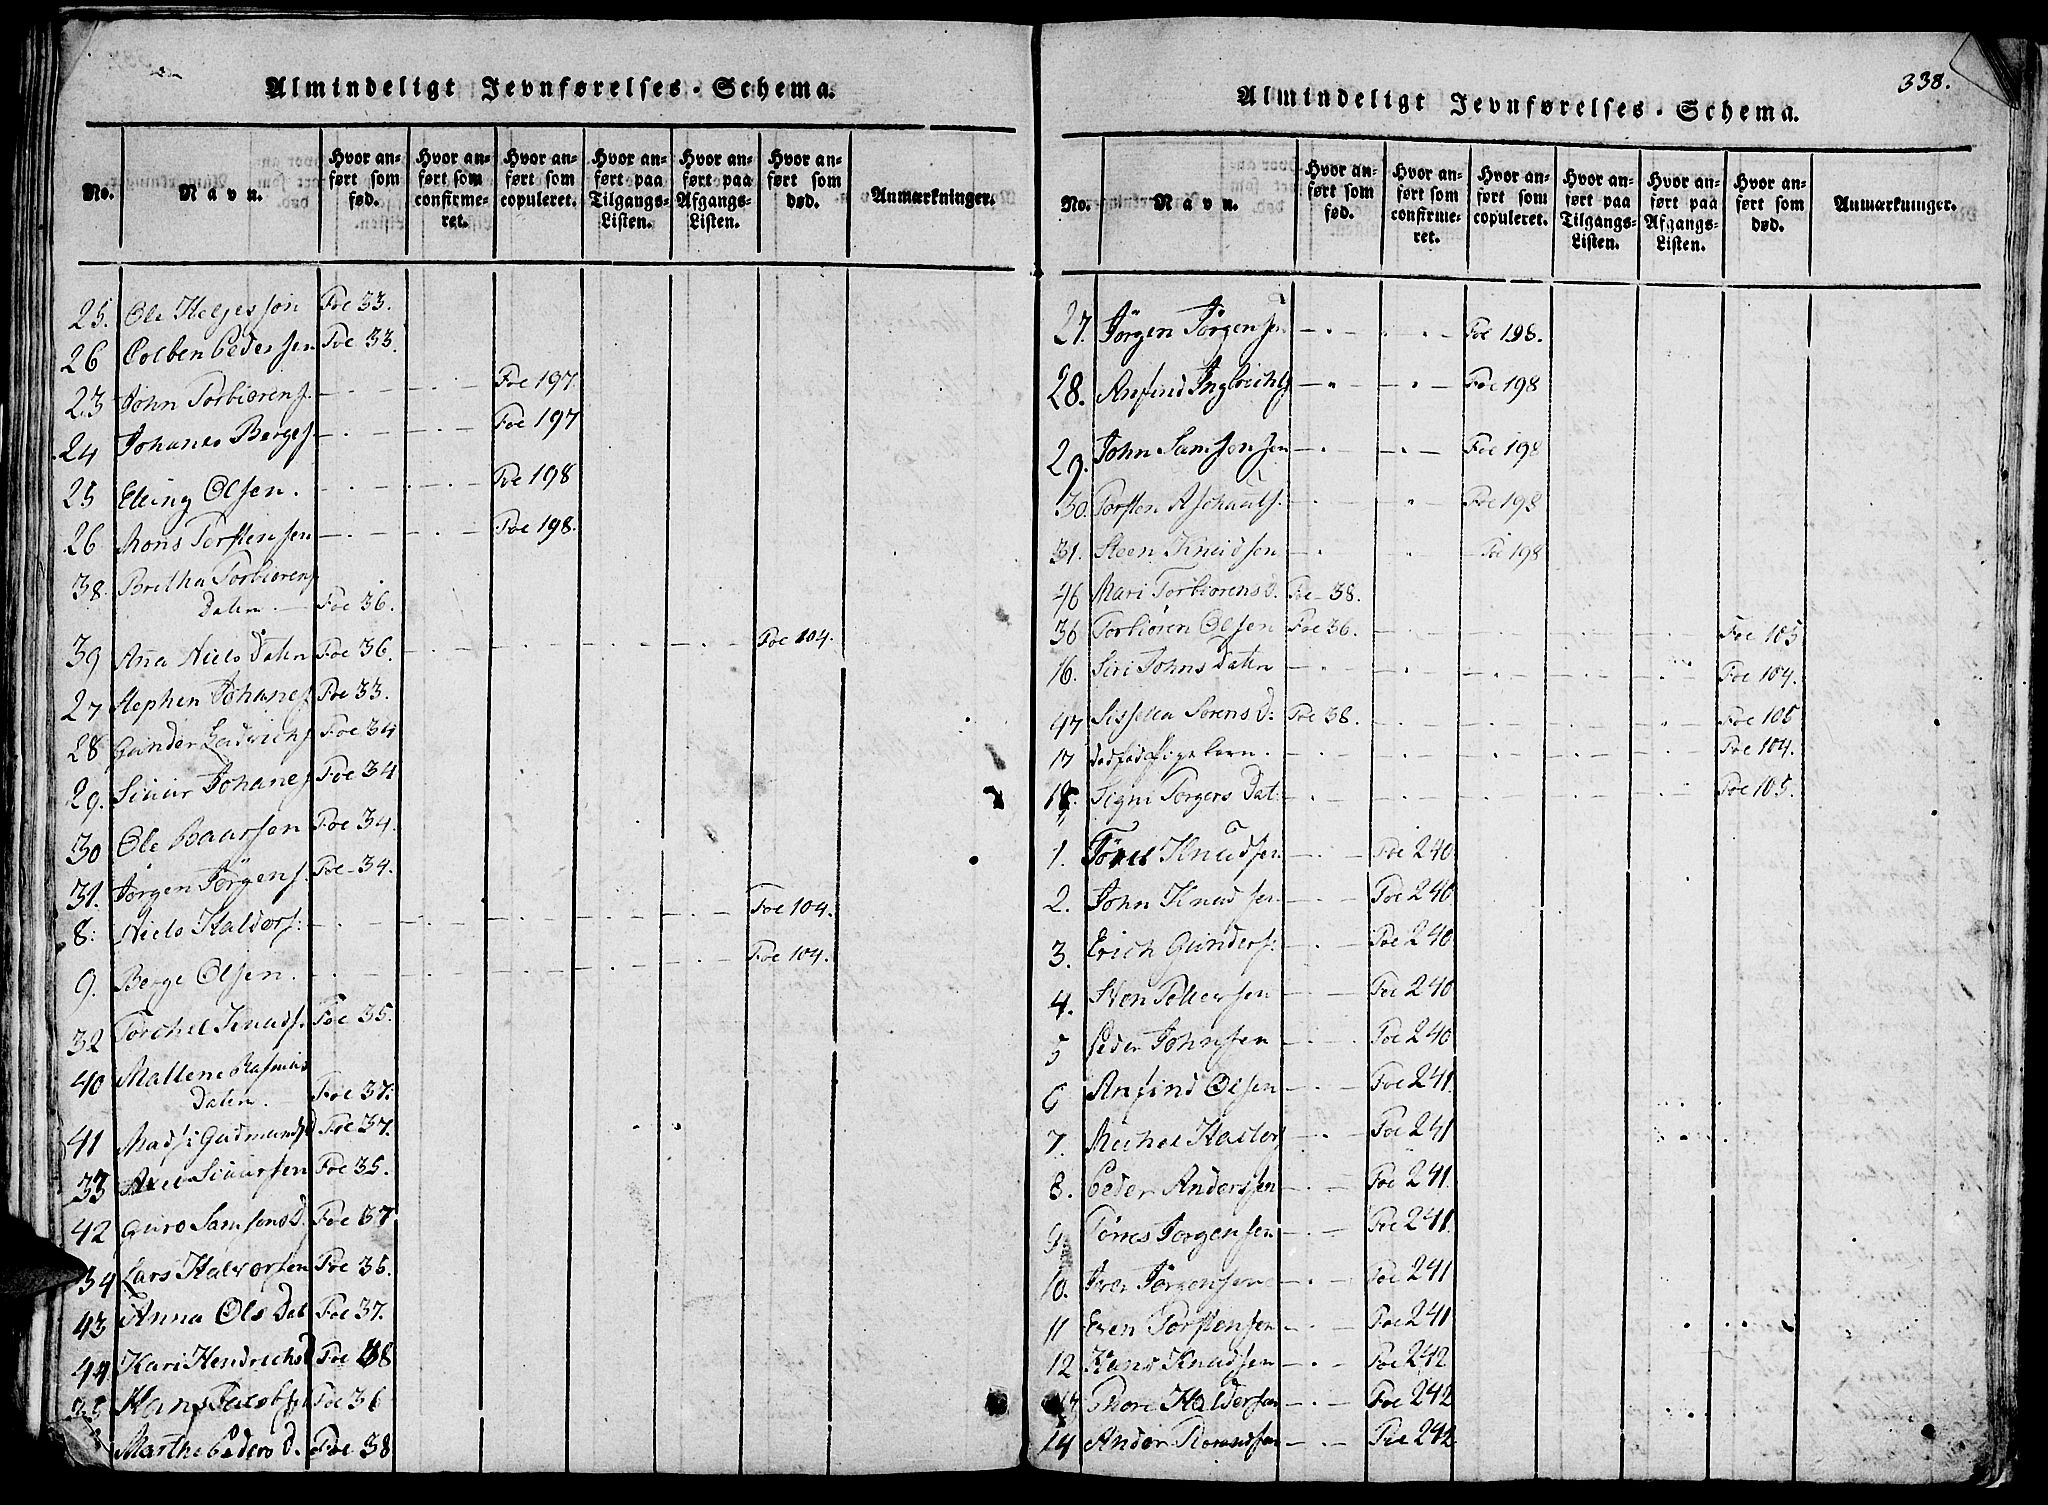 Almindeligt Jevnførelses-Schema.
No.
Navn.
Hvor an-
ført som
fød.
Hvor an-
ført som
confirme-
ret.
Hvor an-
ført som
copuleret.
Hvor an-
ført paa
Tilgangs-
Listen.
Hvor an-
ført paa
Afgangs-
Listen.
Hvor an-
ført som
død.
Anmærkninger.
25. Ole Helgessøn Foe 33.
26 Colben Pedersen Foe 33.
23 John Torbiørens. Foe 197
24 Johanes Berges Foe 197
25 Elling Olsen. Foe 198
26 Mons Torstensen Foe 198.
38. Bretha Torbiørens
Daten Foe 36.
39 Aña Niels Daten Foe 36. Foe 104.
27 Stephen Johanes Foe 33.
28 Gunder Foe 34
29. Siuur Johanes Foe 34
30 Ole Baarsen Foe 34.
31. Jørgen Jørgens. Foe 34.
8. Niels Haldors: Foe 104.
9. Berge Olsen. Foe 104.
32 Torchel Knuds. Foe 35.
40 Mallene Rasmus
Daten. Foe 37.
41 Mads: Gudmunds D Foe 37.
33 Axel Siuursen Foe 35.
42 Guro Samsons D. Foe 37
34 Lars Halvorsen Foe 35.
43 Anna Ols Dat Foe 37.
44 Kari Hendrichs D Foe 38
Hans Foe 36
Marthe Peders D. Foe 38
338.
Almindeligt Jevnførelses-Schema.
No.
Navn.
Hvor an-
ført som
fød.
Hvor an-
ført som
confirme-
ret.
Hvor an-
ført som
copuleret.
Hvor an-
ført paa
Tilgangs-
Listen.
Hvor an-
ført paa
Afgangs-
Listen.
Hvor an-
ført som
død.
Anmærkninger.
27. Jörgen Jörgensen Foe 198.
28. Anfind Ingbrichts Foe 198
29. John Samsonsen Foe 198
30. Torsten Foe 198
31. Steen Knudsen Foe 198
46 Mari Torbiørens D. Foe 38.
36 Torbiören Olsen Foe 36. Foe 105
16. Siri Johns Daten Foe 104.
47 Sissela Sørens D: Foe 38. Foe 105
17 dødfød Pigebarn. Foe 104.
18. Signi Torgers Dat: Foe 105.
1. Törres Knudsen Foe 240
2. John Knudsen Foe 240
3. Erich Gunders: Foe 240
4. Sven Pettersen Foe 240
5 Peder Johnsen Foe 240
6 Anfind Olsen Foe 241
7. Michel Haldors Foe 241
8. Peder Andersen Foe 241
9 Törres Jorgensen Foe 241
10. Iver Jørgensen Foe 241
11 Even Torstensen Foe 241
12 Hans Knudsen Foe 242
Thore Haldorsen Foe 242
14 Ander Foe 242